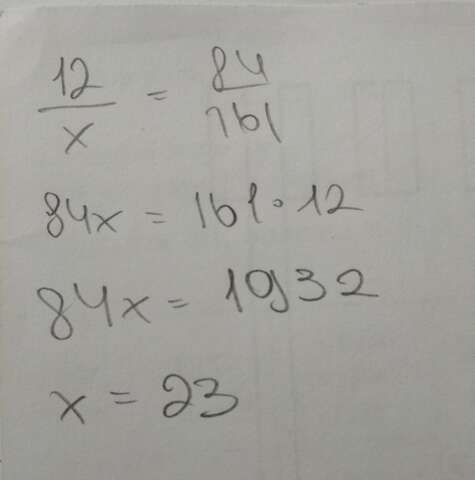 12/x = 84/161
84x = 161·12
84x = 1932
x = 23